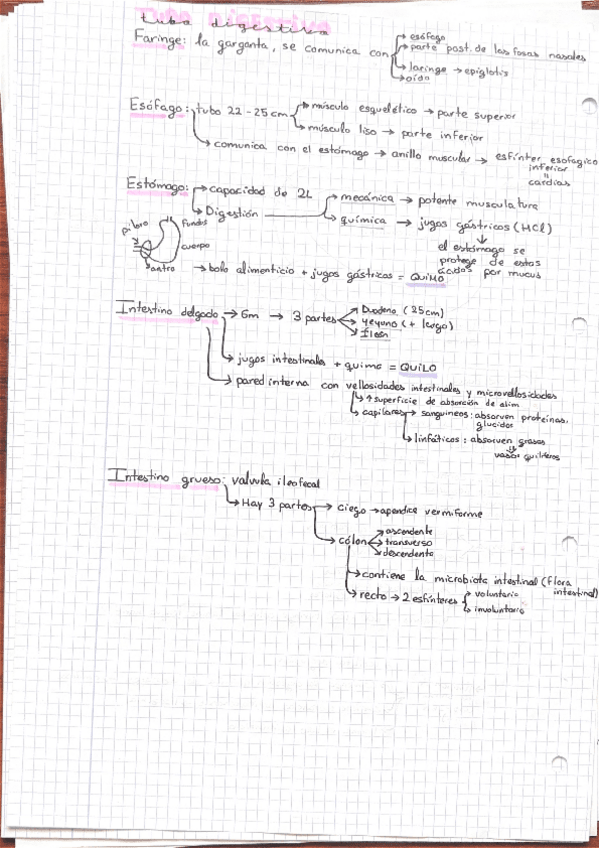 tubo digestivo
Faringe: la garganta, se comunica con → esófago
→ parte post. de las fosas nasales
→ laringe → epiglotis
→ oído
Esófago: tubo 22-25cm → músculo esquelético → parte superior
→ músculo liso → parte inferior
→ comunica con el estómago → anillo muscular → esfínter esofagico
inferior
=
cardias
Estómago: → capacidad de 2L
→ Digestión → mecánica → potente musculatura
→ química → jugos gástricos (HCl)
↓
el estómago se
protege de estos
ácidos por mucus
piloro
fundus
cuerpo
antro
→ bolo alimenticio + jugos gástricos = QUIMO
Intestino delgado → 6m → 3 partes → Duodeno (25cm)
→ yeyuno (+ largo)
→ íleon
→ jugos intestinales + quimo = QUILO
→ pared interna con vellosidades intestinales y microvellosidades
↳ ↑ superficie de absorción de alim.
↳ capilares → sanguineos: absorven proteínas,
glucidos
→ linfáticos: absorven grasas
⇓
vasos quilíferos
Intestino grueso: valvula ileofecal
↳ Hay 3 partes → ciego → apendice vermiforme
→ cólon → ascendente
→ transverso
→ descendente
→ contiene la microbiota intestinal (flora
intestinal)
→ recto → 2 esfínteres → voluntario
→ involuntario